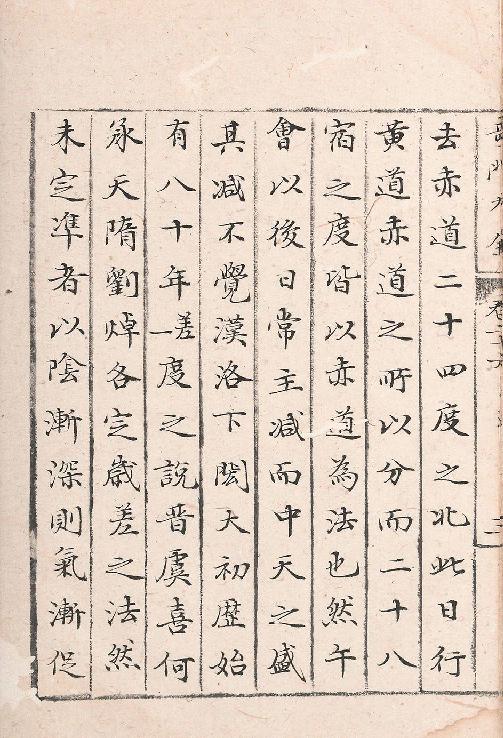 去赤道二十四度之北此日行
黄道赤道之所以分而二十八
宿之度皆以赤道為法也然午
會以後日常主减而中天之盛
其减不覺漢洛下閎大初歴始
有八十年差一度之說晉虞喜何
承天隋劉焯各定歳差之法然
未定準者以陰漸深則氣漸促